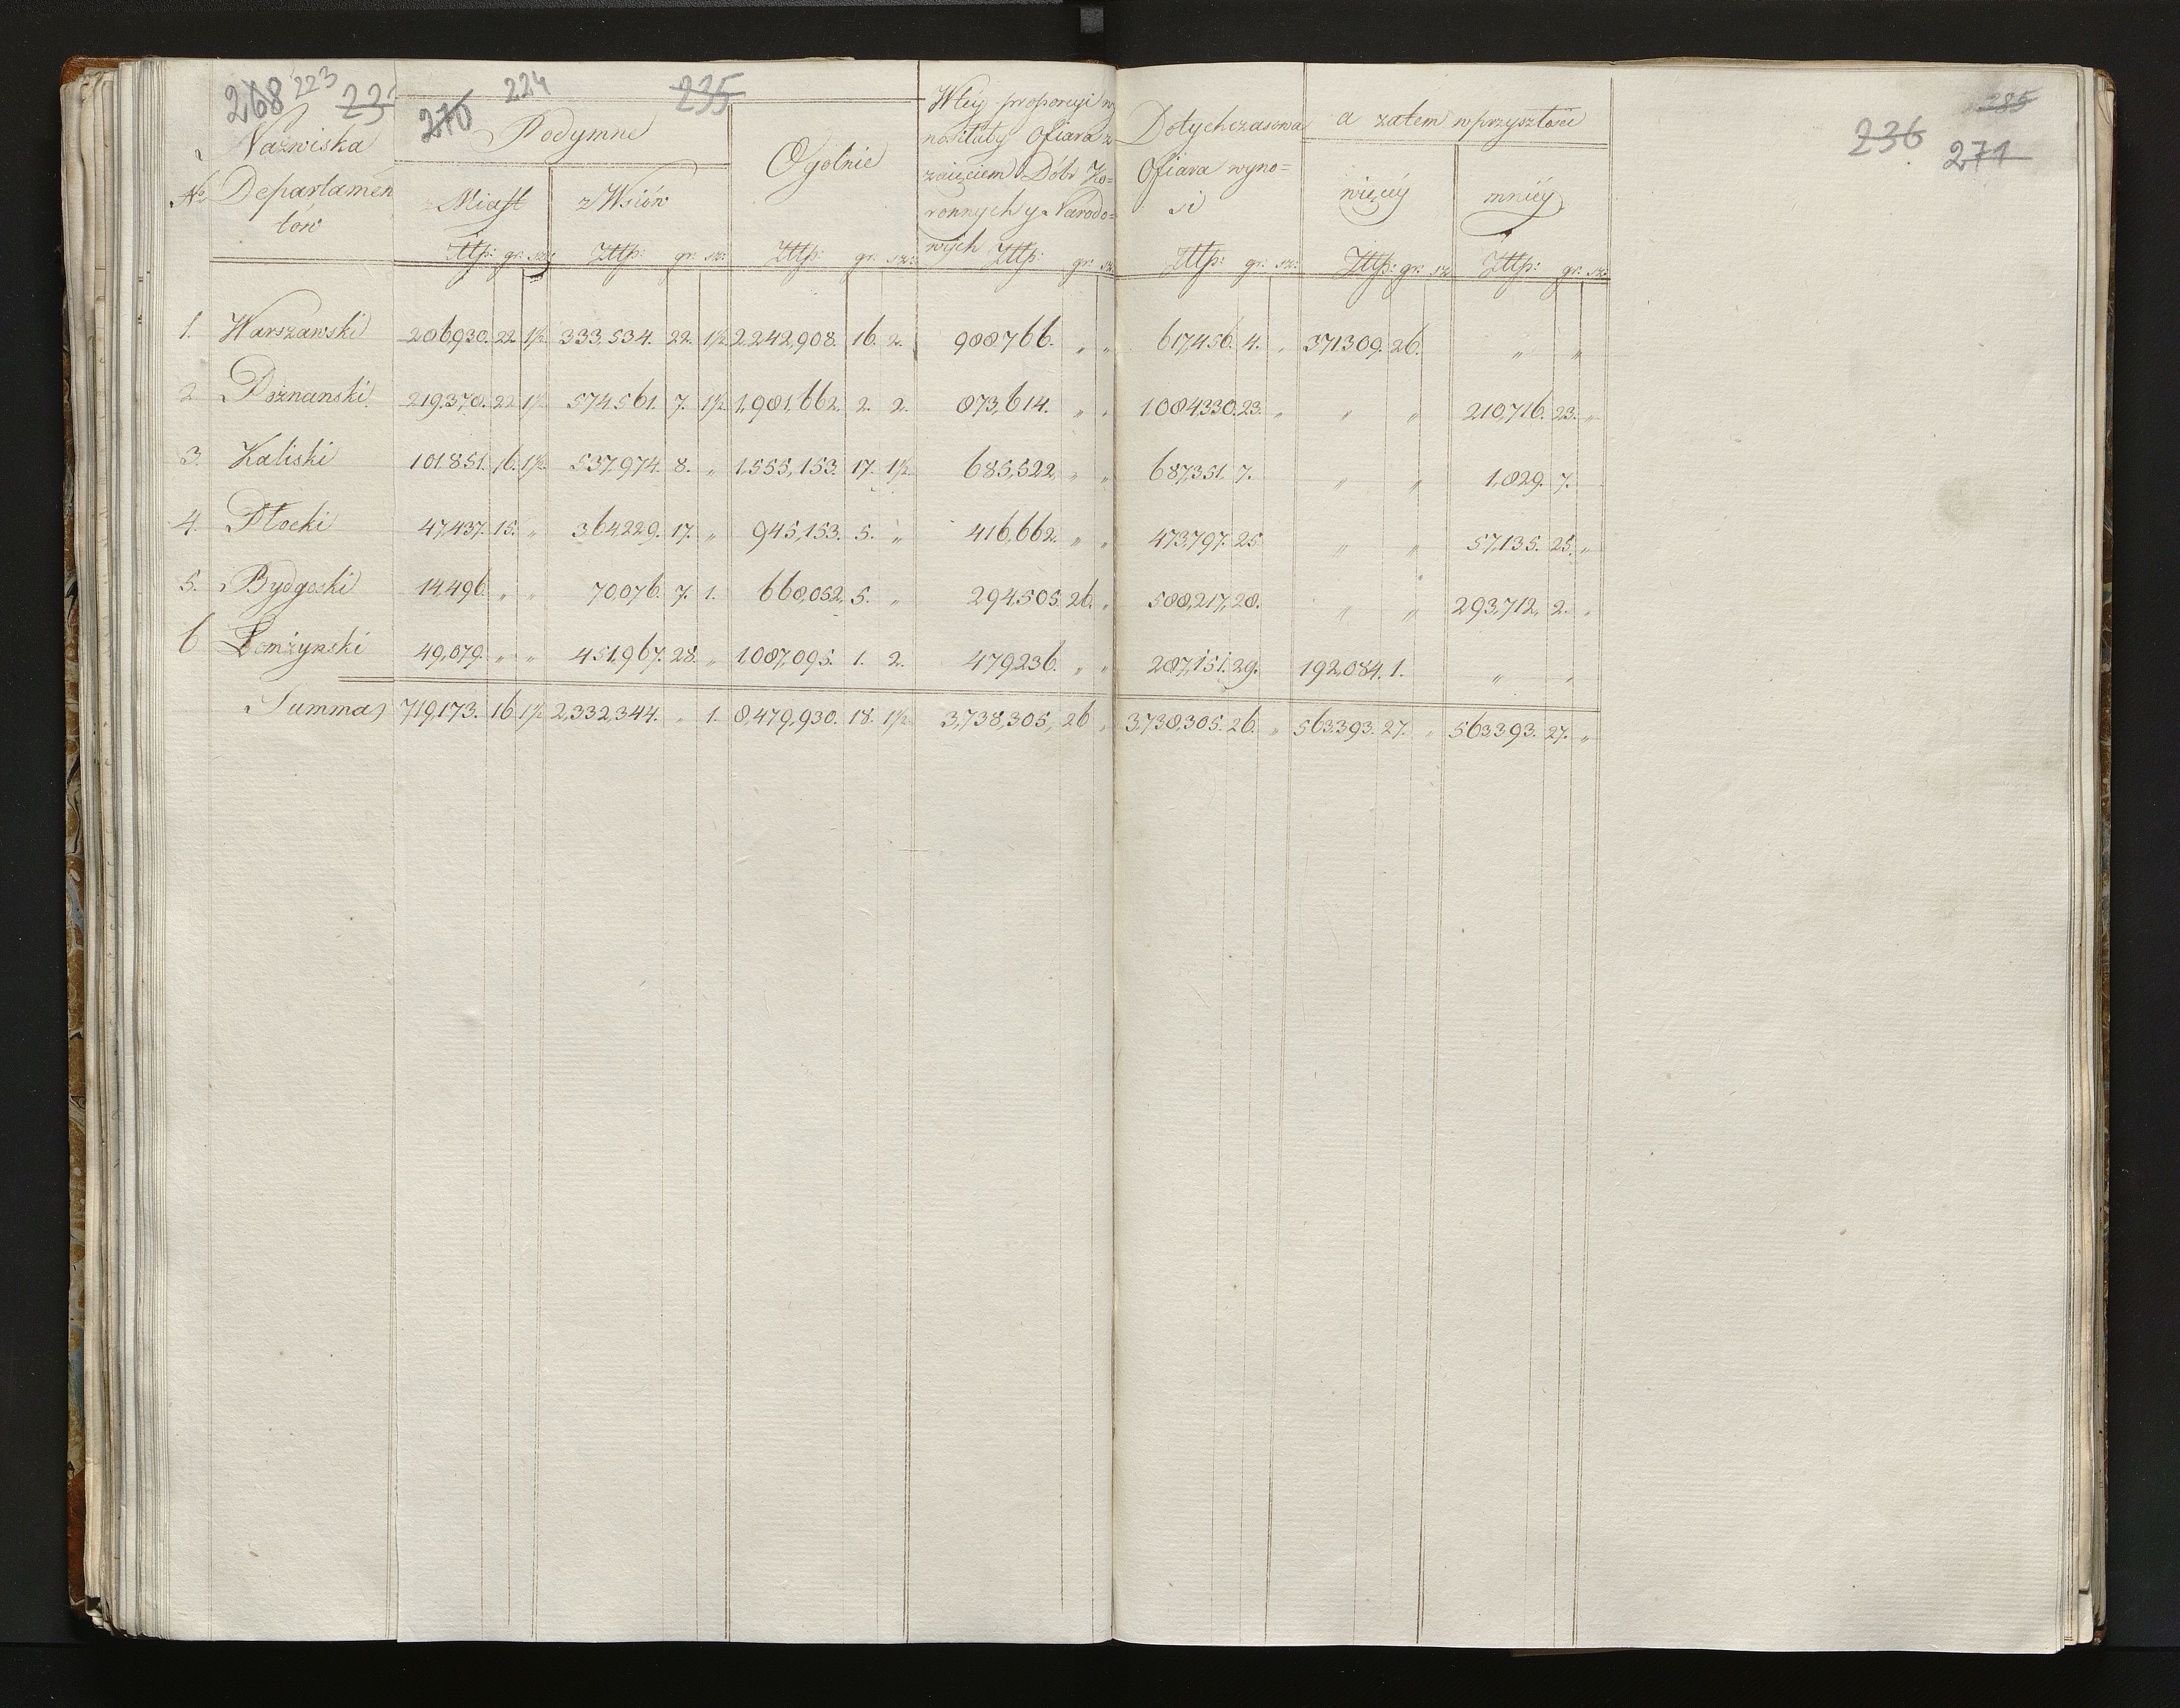 268 223 235
270 224 235
236 285 271
No Nazwiska Departamen
tów
Podymne
z Miast z Wsiów
Ogolnie
W tey proporcyi wy
nosiłaby Ofiara z
zaięciem Dóbr Ko=
ronnych y Narodo=
wych
Dotychczasowa
Ofiara wyno=
si
a zatem w przyszłości
więcéy mniéy
Złtp: gr: sz: Złtp: gr: sz: Złtp: gr: sz: Złtp: gr: sz: Złtp: gr: sz: Złtp: gr: sz: Złtp: gr: sz:
1. Warszawski 286,930. 22. 1½ 333,534. 22. 1½ 2,242,908. 16. 2. 988766. " " 617,456. 4. " 371309. 26. " "
2. Poznanski 219,378. 22. 1½ 574,561. 7. 1½ 1,981,662. 2. 2. 873,614. " " 1084330. 23. " " " 210,716. 23. "
3. Kaliski 101851. 16. 1½ 537,974. 8. " 1,555,153. 17. 1½ 685,522. " " 687,351. 7. " " 1,829. 7.
4. Płocki 47,437. 15. " 364,229. 17. " 945,153. 5. " 416,662. " " 473,797. 25 " " 57,135. 25. "
5. Bydgoski 14,496 " " 70,076. 7. 1. 668,052. 5. " 294,505. 26. " 588,217. 28. " " 293,712. 2. "
6 Łomżynski 49,079. " " 451,967. 28. " 1087,095. 1. 2. 479,236. " " 287,151. 29. 192,084. 1. " "
Summa 719,173. 16 1½ 2,332,344. " 1. 8,479,930. 18. 1½ 3,738,305, 26 " 3,738,305. 26. " 563,393. 27. " 563,393. 27. "